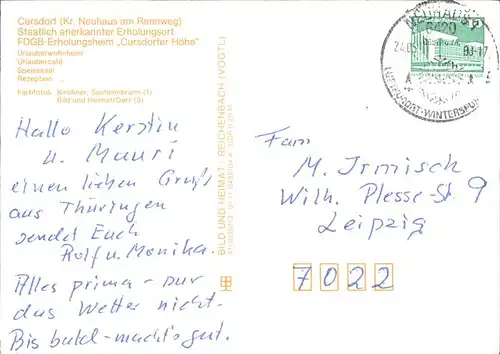 Cursdorf (Kr. Neuhaus am Rennweg)
Staatlich anerkannter Erholungsort
FDGB-Erholungsheim „Cursdorfer Höhe"
Urlauberwohnheim
Urlaubercafé
Speisesaal
Rezeption
Farbfotos: Kirchner, Sachsenbrunn (1)
Bild und Heimat/Darr (3)
Hallo Kerstin
u. Mauri
einen lieben Gruß
aus Thüringen
sendet Euch
Rolf u. Monika.
Alles prima - nur
das Wetter nicht.
Bis bald - macht's gut.
BILD UND HEIMAT REICHENBACH (VOGTL)
NEUHAUS
6420
LUFTKURORT-WINTERSPORT
Fam
M. Irmisch
Wilh. Plesse-St 9
Leipzig
7022